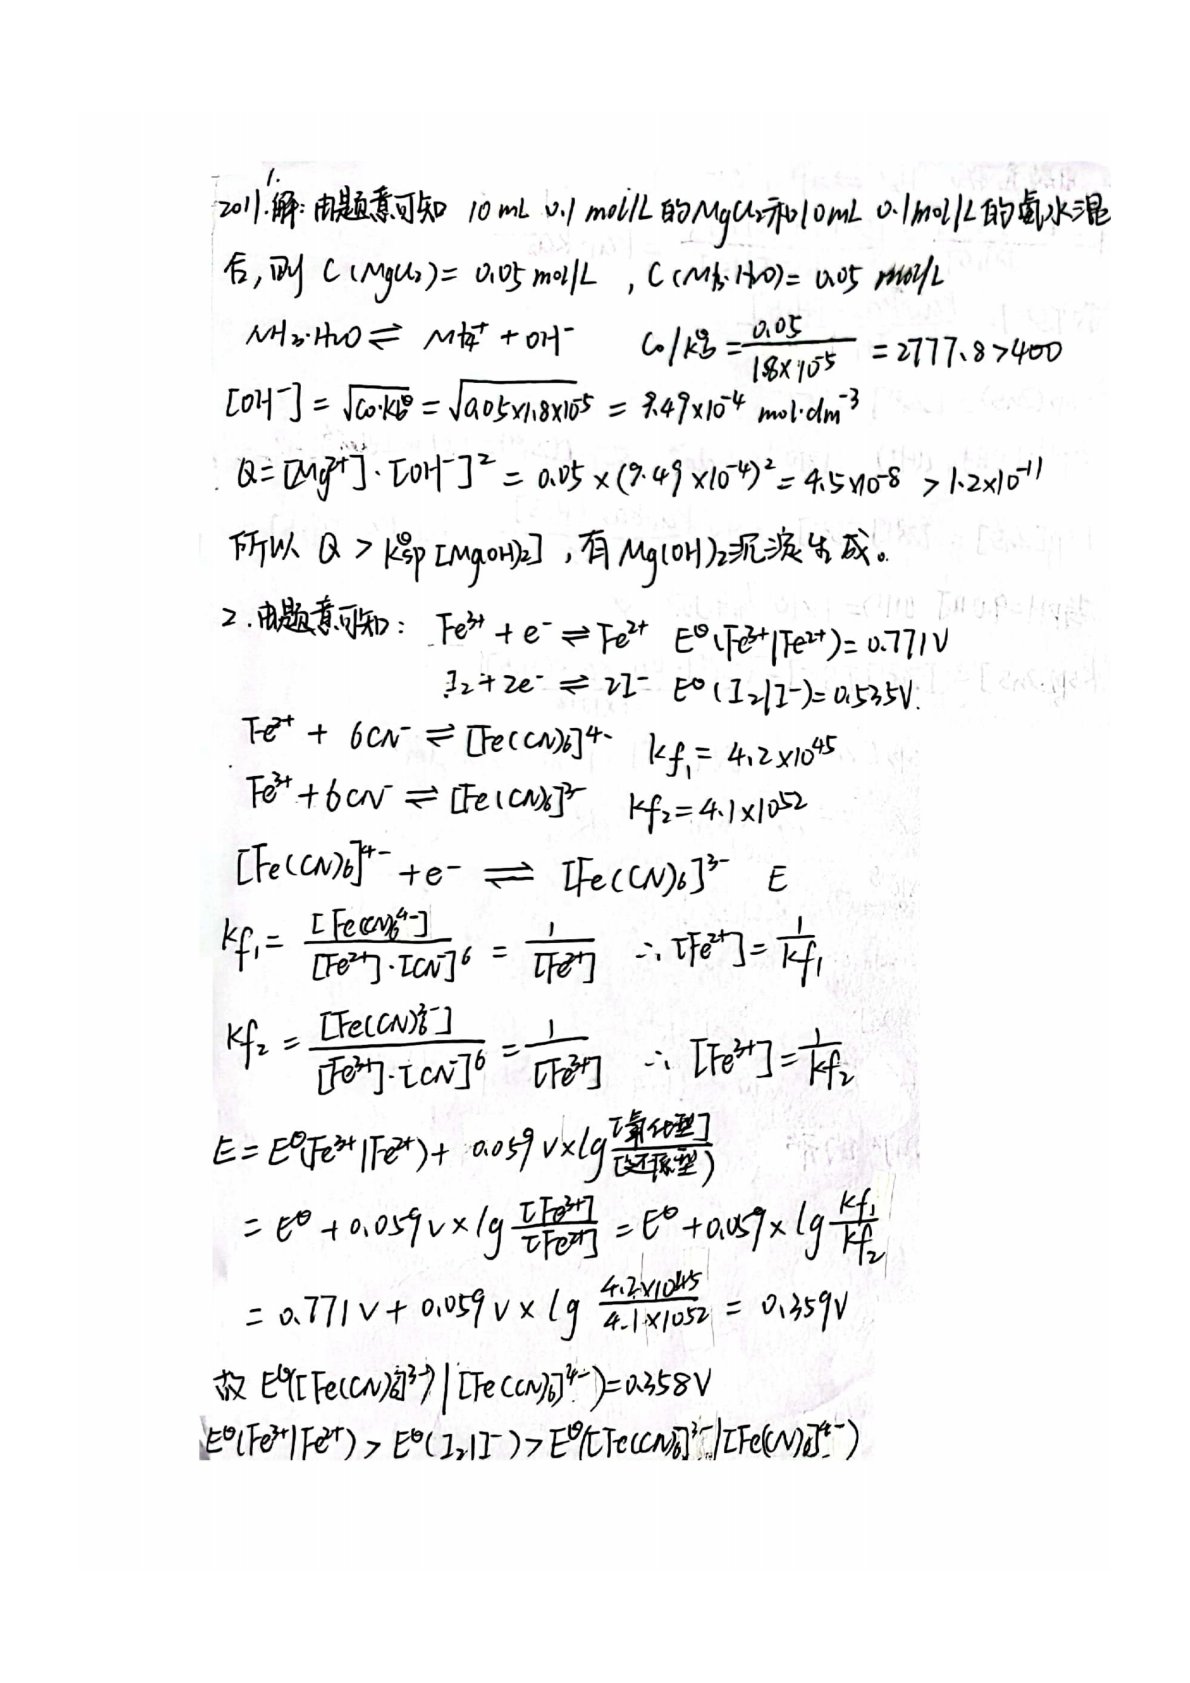 1.
2011.解:由题意可知 10 mL 0.1 mol/L的MgCl₂和10mL 0.1mol/L的氨水混
合,则 C(MgCl₂)= 0.05 mol/L ,C(NH₃·H₂O)= 0.05 mol/L
NH₃·H₂O ⇌ NH₄⁺ + OH⁻ C₀/K_b^θ = 0.05/1.8×10⁻⁵ = 2777.8>400
[OH⁻] = √(C₀·K_b^θ) = √(0.05×1.8×10⁻⁵) = 9.49×10⁻⁴ mol·dm⁻³
Q=[Mg²⁺]·[OH⁻]² = 0.05×(9.49×10⁻⁴)² = 4.5×10⁻⁸ > 1.2×10⁻¹¹
所以 Q > K_sp^θ [Mg(OH)₂] ,有Mg(OH)₂沉淀生成。
2.由题意可知: Fe³⁺ + e⁻ ⇌ Fe²⁺ E^θ(Fe³⁺|Fe²⁺)= 0.771V
I₂+2e⁻ ⇌ 2I⁻ E^θ(I₂|I⁻)=0.535V.
Fe²⁺ + 6CN⁻ ⇌ [Fe(CN)₆]⁴⁻ Kf₁ = 4.2×10⁴⁵
Fe³⁺+6CN⁻ ⇌ [Fe(CN)₆]³⁻ Kf₂=4.1×10⁵²
[Fe(CN)₆]⁴⁻ +e⁻ ⇌ [Fe(CN)₆]³⁻ E
Kf₁ = [Fe(CN)₆⁴⁻]/[Fe²⁺]·[CN⁻]⁶ = 1/[Fe²⁺] ∴ [Fe²⁺] = 1/Kf₁
Kf₂ = [Fe(CN)₆³⁻]/[Fe³⁺]·[CN⁻]⁶ = 1/[Fe³⁺] ∴ [Fe³⁺] = 1/Kf₂
E= E^θ(Fe³⁺|Fe²⁺)+ 0.059 V×lg [氧化型]/[还原型]
= E^θ + 0.059V× lg [Fe³⁺]/[Fe²⁺] = E^θ +0.059× lg Kf₁/Kf₂
= 0.771V + 0.059 V× lg 4.2×10⁴⁵/4.1×10⁵² = 0.359V
故 E^θ([Fe(CN)₆]³⁻)|[Fe(CN)₆]⁴⁻)=0.358V
E^θ(Fe³⁺|Fe²⁺) > E^θ(I₂|I⁻) > E^θ([Fe(CN)₆]³⁻/[Fe(CN)₆]⁴⁻)